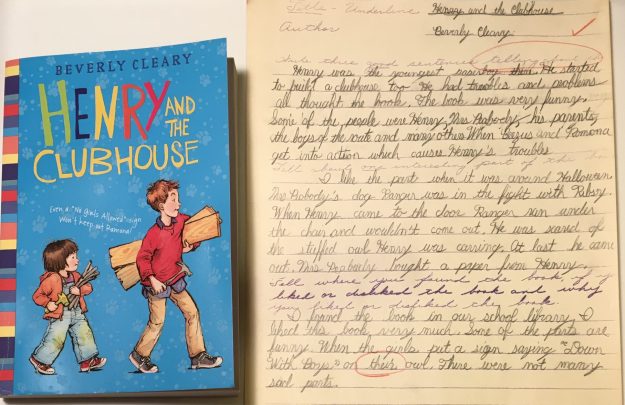 BEVERLY CLEARY
HENRY AND THE CLUBHOUSE
Even a "No Girls Allowed" sign
Won't keep out Ramona!
Title - Underline Henry and the Clubhouse
Author Beverly Cleary
three good sentences telling
Henry was the youngest He started
to build a clubhouse too. He had troubles and problems
all thought the book. The book was very funny.
Some of the people were Henry, Mrs Peabody, his parents,
the boys of the route and many other. When Beezus and Ramona
get into action which causes Henry's troubles.
Tell interesting part of the
I like the part when it was around Halloween
Mrs. Peabody's dog Ranger was in the fight with Ribsy.
When Henry came to the door Ranger ran under
the chair and wouldn't come out. He was scared of
the stuffed owl Henry was carring. At last he came
out. Mrs Peabody bought a paper from Henry.
Tell where you found the book,
liked or disliked the book and why
you liked or disliked the book
I found the book in our school library. I
liked this book very much. Some of the parts are
funny. When the girls put a sign saying "Down
With Boys" on their owl. There were not many
sad parts.